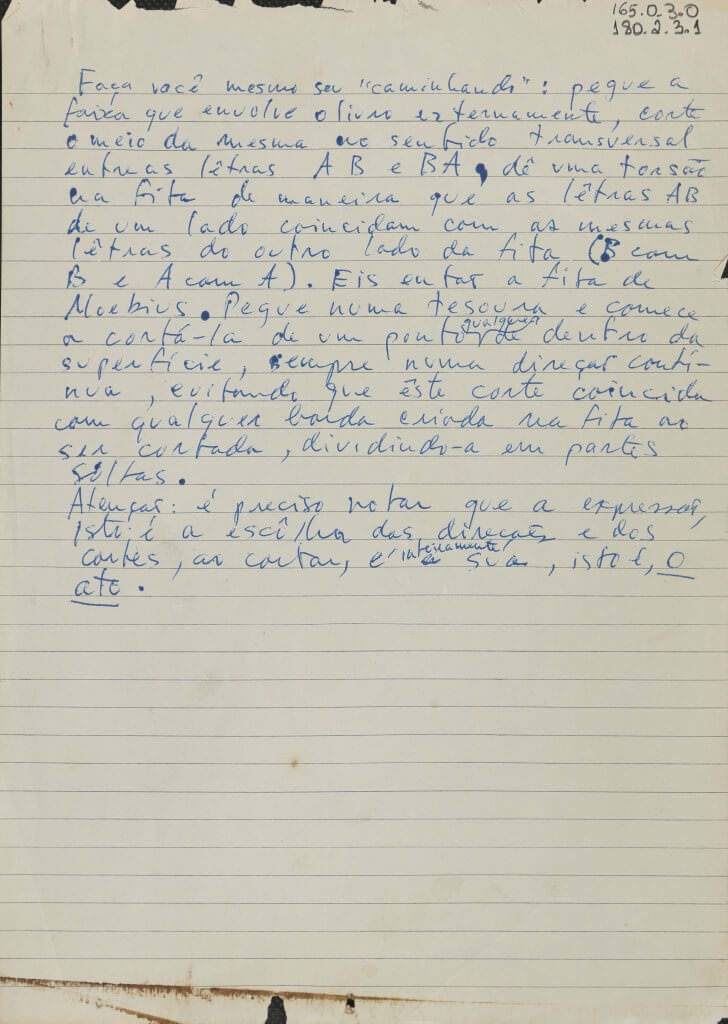 165.0.3.0
180.2.3.1
Faça você mesmo seu "caminhando": pegue a
faixa que envolve o livro externamente, corte
o meio da mesma no sentido transversal
entre as lêtras AB e BA, dê uma torsão
na fita de maneira que as lêtras AB
de um lado coincidam com as mesmas
lêtras do outro lado da fita (B com
B e A com A). Eis entao a fita de
Moebius. Pegue numa tesoura e comece
a cortá-la de um ponto qualquer de dentro da
superfície, sempre numa direçao contí-
nua, evitando que êste corte coincida
com qualquer borda criada na fita ao
ser cortada, dividindo-a em partes
soltas.
Atençao: é preciso notar que a expressao,
isto é a escôlha das direções e dos
cortes, ao cortar, é inteiramente sua, isto é, O
ato.